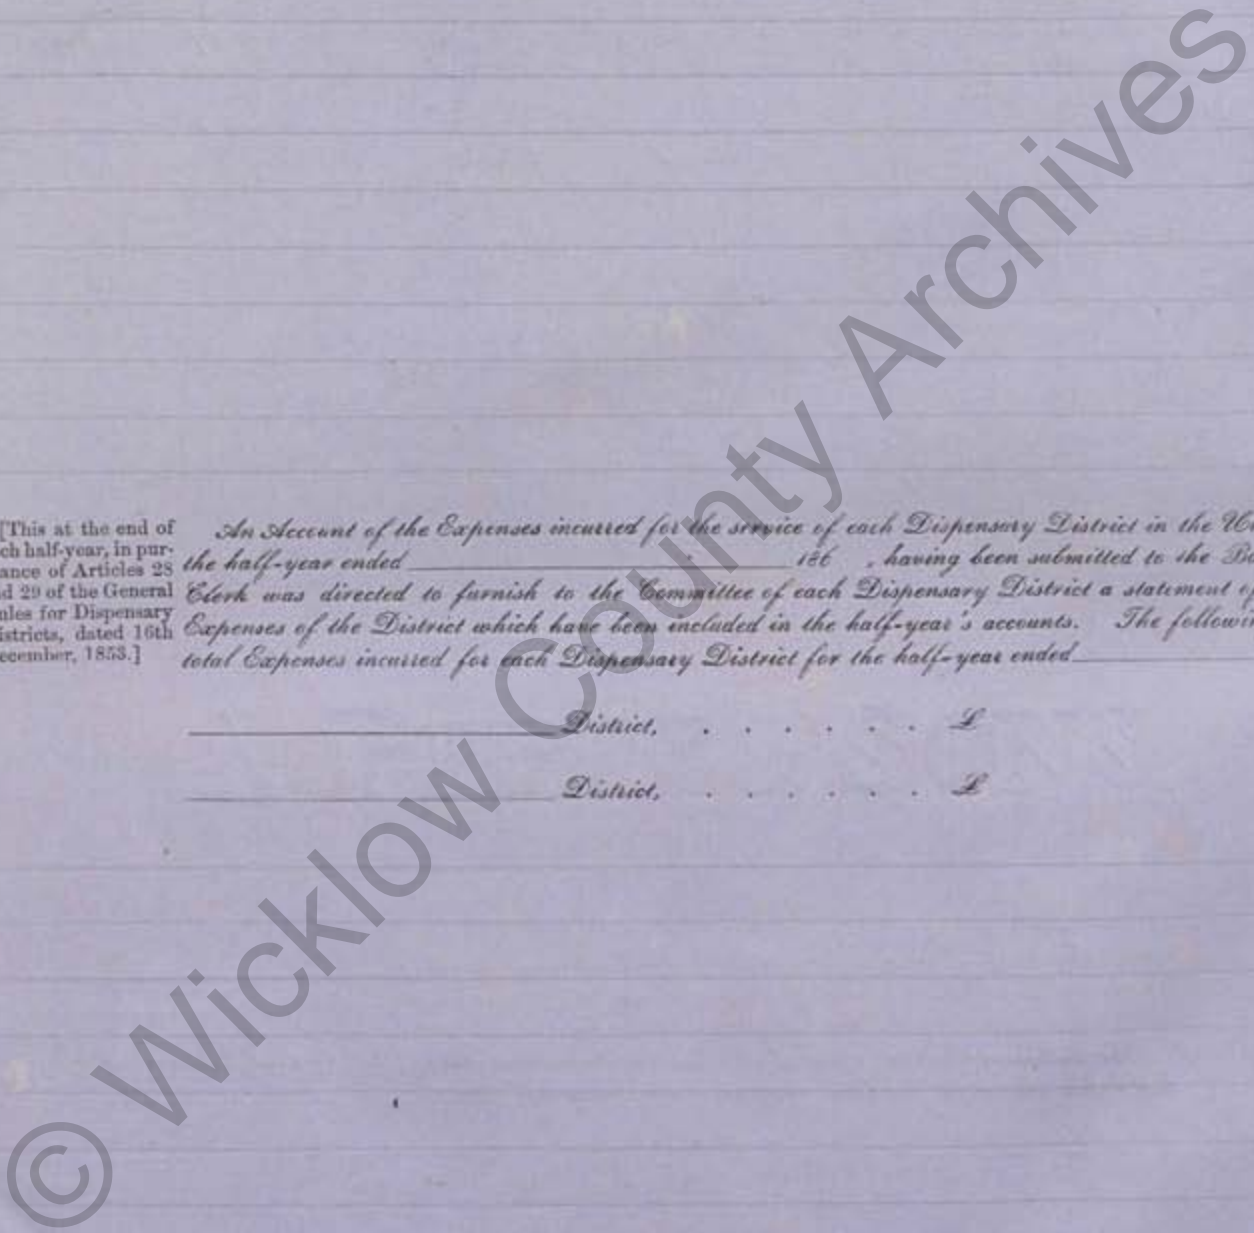 [This at the end of
ch half-year, in pur-
ance of Articles 28
d 29 of the General
ules for Dispensary
istricts, dated 16th
ecember, 1853.]
An Account of the Expenses incurred for the service of each Dispensary District in the
the half-year ended 186 , having been submitted to the Bo
Clerk was directed to furnish to the Committee of each Dispensary District a statement of
Expenses of the District which have been included in the half-year's accounts. The followin
total Expenses incurred for each Dispensary District for the half-year ended
District, . . . . . . £
District, . . . . . . £
© Wicklow County Archives